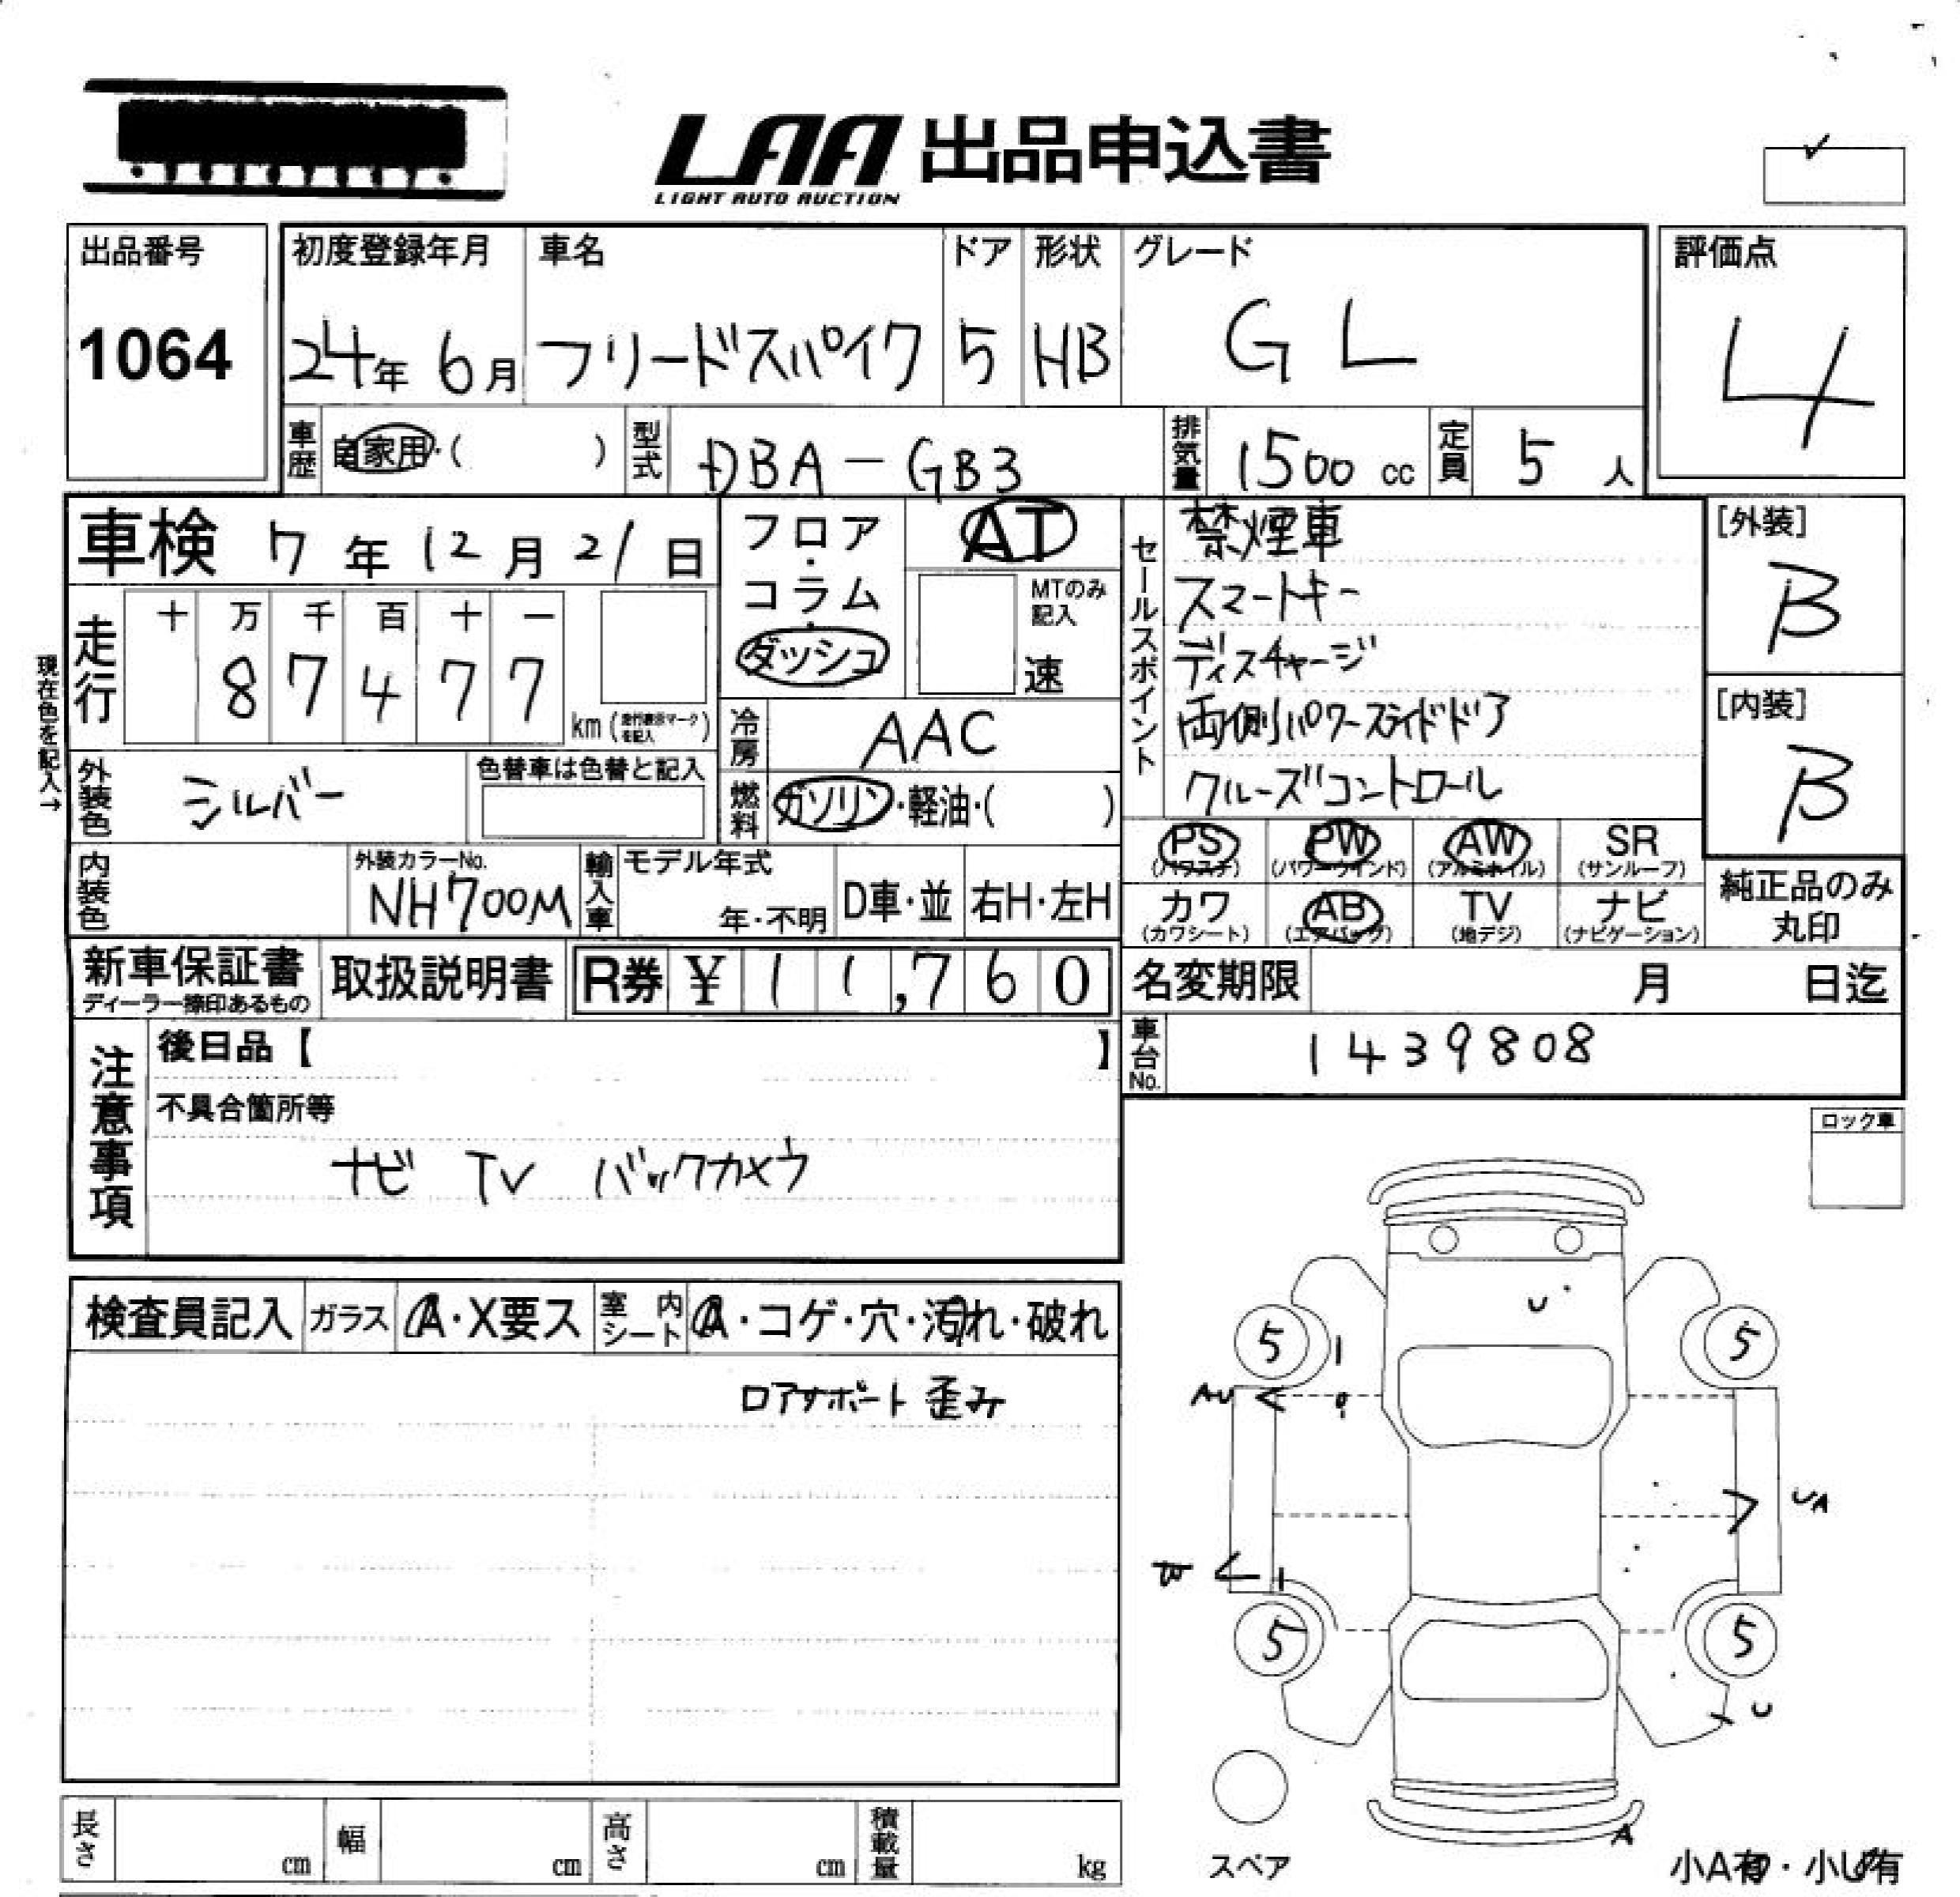 LAA 出品申込書
LIGHT AUTO AUCTION
出品番号
1064
初度登録年月
24年 6月
車名
フリードスパイク
ドア
5
形状
HB
グレード
GL
評価点
4
車歴 自家用・( )
型式 DBA-GB3
排気量 1500 cc
定員 5 人
車検 7年 12月 21日
走行
十 万 千 百 十 一
8 7 4 7 7
km(走行表示マークを記入)
現在色を記入→
フロア・
コラム・
ダッシュ
AT
MTのみ
記入
速
冷房 AAC
燃料 ガソリン・軽油・( )
セールスポイント
禁煙車
スマートキー
ディスチャージ
両側パワースライドドア
クルーズコントロール
[外装]
B
[内装]
B
外装色 シルバー
色替車は色替と記入
内装色
外装カラーNo.
NH700M
輸入車
モデル年式
年・不明
D車・並
右H・左H
PS
(パワステ)
PW
(パワーウインド)
AW
(アルミホイル)
SR
(サンルーフ)
カワ
(カワシート)
AB
(エアバッグ)
TV
(地デジ)
ナビ
(ナビゲーション)
純正品のみ
丸印
新車保証書
ディーラー捺印あるもの
取扱説明書
R券 ¥11,760
名変期限 月 日迄
車台No. 1439808
注意事項
後日品【 】
不具合箇所等
ナビ TV バックカメラ
ロック車
検査員記入
ガラス A・X要ス
室内シート A・コゲ・穴・汚れ・破れ
ロアサポート歪み
U
5
5
AU
UA
W
5
5
U
A
スペア
小A有・小U有
長さ cm
幅 cm
高さ cm
積載量 kg